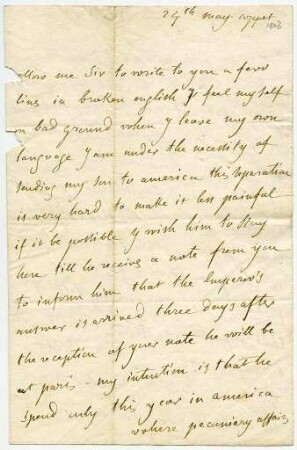 24th may. coppet
1806
allow me Sir to write to you a few
lines in broken english y feel my self
on bad ground when y leave my own
language y am under the necessity of
sending my son to america this operation
is very hard to make it less painful
if it be possible y wish him to stay
here till he receives a note from you
to inform him that the Emperor's
answer is arrived three days after
the reception of your note he will be
at paris - my intention is that he
spend only this year in america
where pecuniary affairs